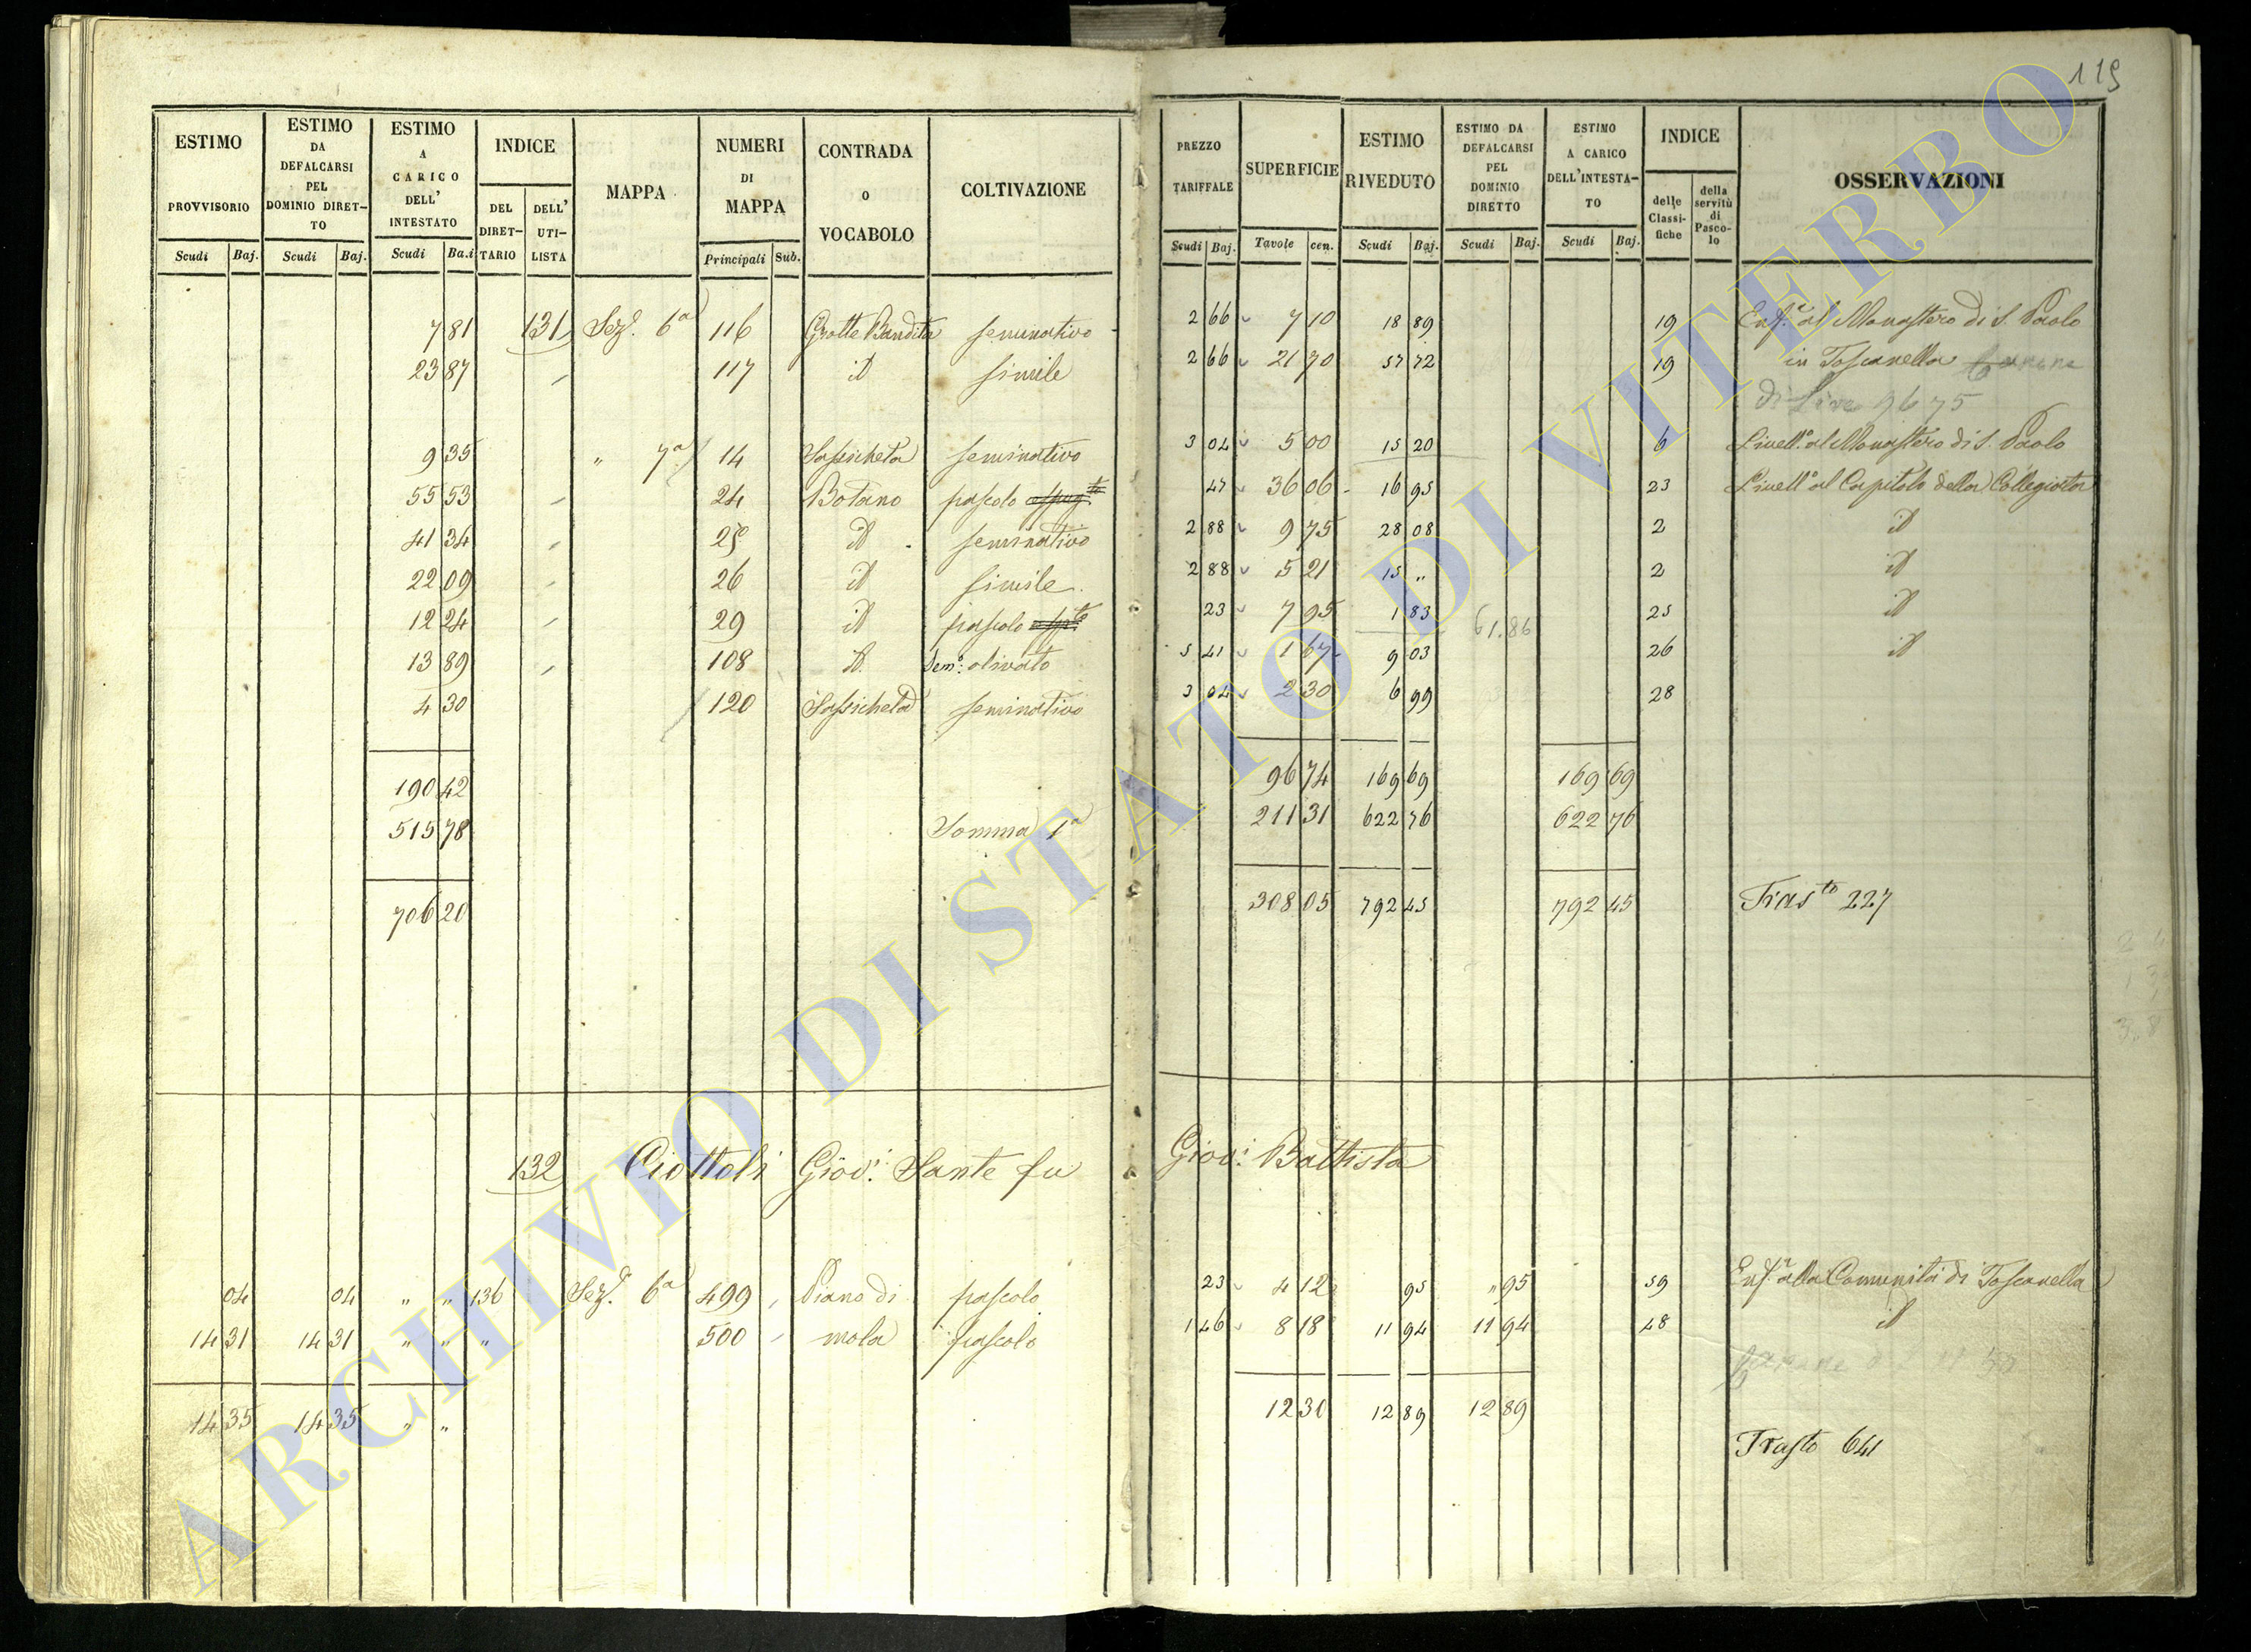 119
ESTIMO PROVVISORIO | ESTIMO DA DEFALCARSI PEL DOMINIO DIRET-TO | ESTIMO A CARICO DELL' INTESTATO | INDICE | MAPPA | NUMERI DI MAPPA | CONTRADA O VOCABOLO | COLTIVAZIONE | PREZZO TARIFFALE | SUPERFICIE | ESTIMO RIVEDUTO | ESTIMO DA DEFALCARSI PEL DOMINIO DIRETTO | ESTIMO A CARICO DELL'INTESTA-TO | INDICE | OSSERVAZIONI
DEL DIRET-TARIO | DELL' UTI-LISTA | delle Classi-fiche | della servitù di Pasco-lo
Scudi | Baj. | Scudi | Baj. | Scudi | Ba.i | Principali | Sub. | Scudi | Baj. | Tavole | cen. | Scudi | Baj. | Scudi | Baj. | Scudi | Baj.
7 81 | 131 | Sezᵉ. 6ª | 116 | Grotte Bandita | seminativo | 2 66 | 7 10 | 18 89 | 19 | Enfᵃ. al Monastero di S. Paolo
23 87 | 117 | id | simile | 2 66 | 21 70 | 57 72 | 19 | in Toscanella
di 96 75
9 35 | " 7ª | 14 | Sassicheta | seminativo | 3 04 | 5 00 | 15 20 | 6 | Livellᵒ. al Monastero di S. Paolo
55 53 | 24 | Botano | pascolo | 47 | 36 06 | 16 95 | 23 | Livellᵒ al Capitolo della Collegiata
41 34 | 25 | id | seminativo | 2 88 | 9 75 | 28 08 | 2 | id
22 09 | 26 | id | simile | 2 88 | 5 21 | 15 " | 2 | id
12 24 | 29 | id | pascolo | 23 | 7 95 | 1 83 | 61.86 | 25 | id
13 89 | 108 | id | Semᵒ: olivato | 5 41 | 1 67 | 9 03 | 26 | id
4 30 | 120 | Sassicheta | seminativo | 3 04 | 2 30 | 6 99 | 28
190 42 | 96 74 | 169 69 | 169 69
515 78 | Somma 1ª | 211 31 | 622 76 | 622 76
706 20 | 308 05 | 792 45 | 792 45 | Trasᵗᵒ 227
132 Ciottoli Giov: Sante fu Giov: Battista
04 | 04 | " " | 136 | Sezᵉ. 6ª | 499 | Piano di | pascolo | 23 | 4 12 | 95 | " 95 | 59 | Enfᵃ. alla Comunità di Toscanella
14 31 | 14 31 | " " | " | 500 | mola | pascolo | 1 46 | 8 18 | 11 94 | 11 94 | 48 | id
14 35 | 14 35 | " " | 12 30 | 12 89 | 12 89
Trasto 641
ARCHIVIO DI STATO DI VITERBO